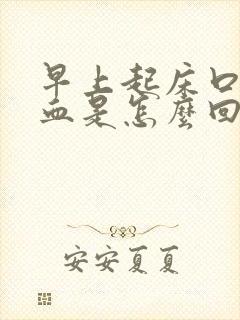 早上起床口
血是怎麼回
安安夏夏